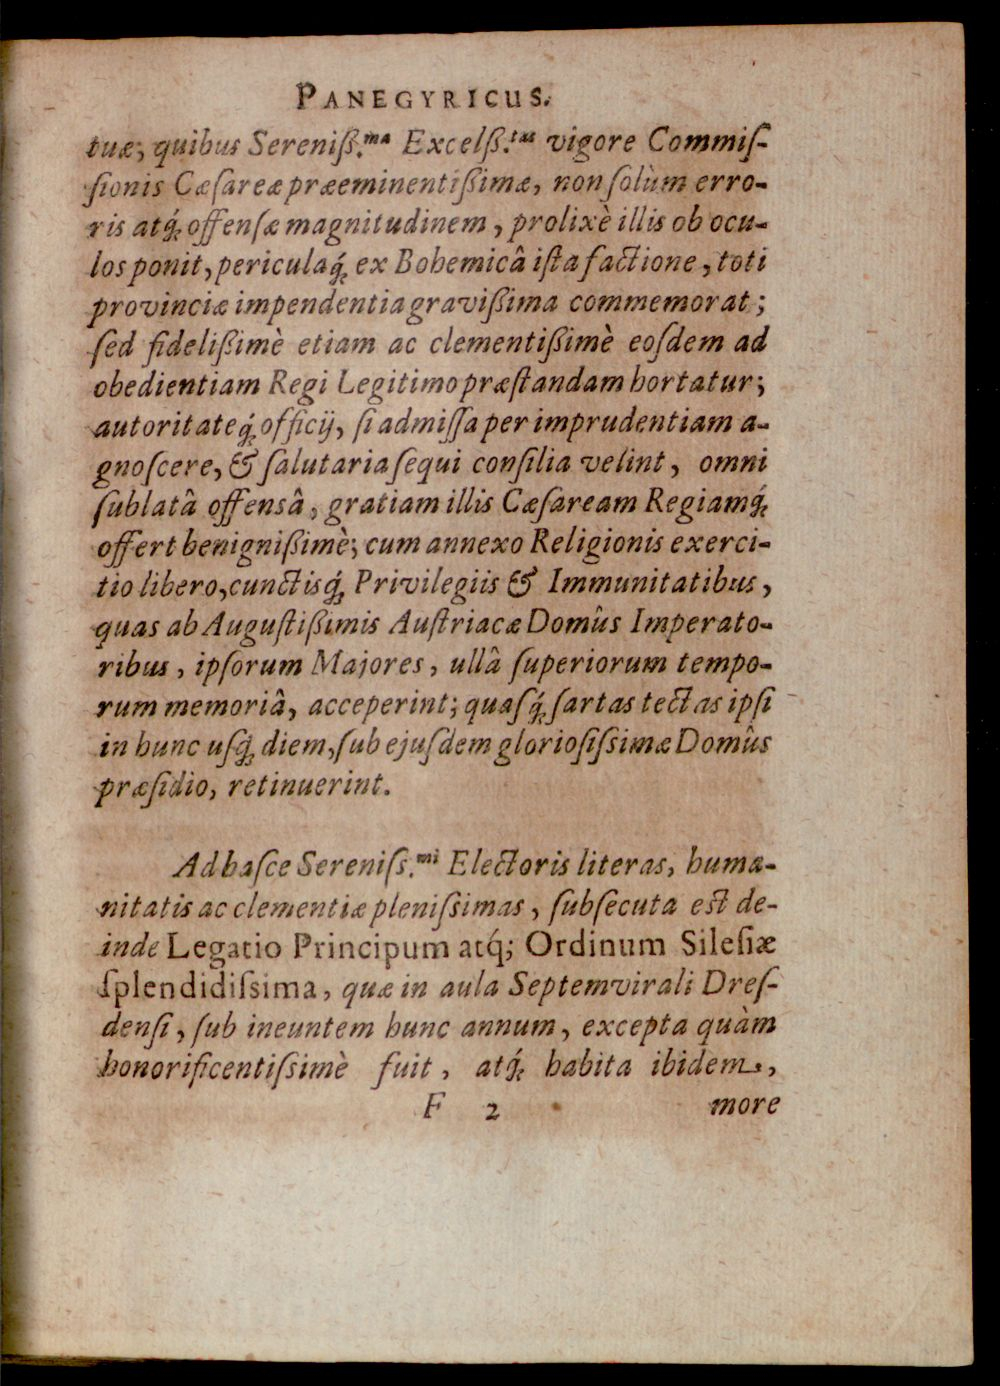 PANEGYRICUS.
tuæ; quibus Sereniß.ᵐᵃ Excelß.ᵗᵃˢ vigore Commiſ-
ſionis Cæſareæ præeminentißimæ, non ſolùm erro-
ris atq́; offenſæ magnitudinem, prolixè illis ob ocu-
los ponit, periculaq́; ex Bohemicâ iſta factione, toti
provinciæ impendentia gravißima commemorat;
ſed fidelißimè etiam ac clementißimè eoſdem ad
obedientiam Regi Legitimo præſtandam hortatur;
autoritateq́; officij, ſi admiſſa per imprudentiam a-
gnoſcere, & ſalutaria ſequi conſilia velint, omni
ſublatâ offensâ, gratiam illis Cæſaream Regiamq́;
offert benignißimè; cum annexo Religionis exerci-
tio libero, cunctisq́; Privilegiis & Immunitatibus,
quas ab Auguſtißimis Auſtriacæ Domûs Imperato-
ribus, ipſorum Majores, ullâ ſuperiorum tempo-
rum memoriâ, acceperint; quaſq́; ſartas tectas ipſi
in hunc uſq́; diem, ſub ejuſdem glorioſiſsimæ Domûs
præſidio, retinuerint.
Ad haſce Sereniſs.ᵐⁱ Electoris literas, huma-
nitatis ac clementiæ pleniſsimas, ſubſecuta est de-
inde Legatio Principum atq́; Ordinum Sileſiæ
ſplendidiſsima, quæ in aula Septemvirali Dreſ-
denſi, ſub ineuntem hunc annum, excepta quàm
honorificentiſsimè fuit, atq́; habita ibidem,
F 2 more